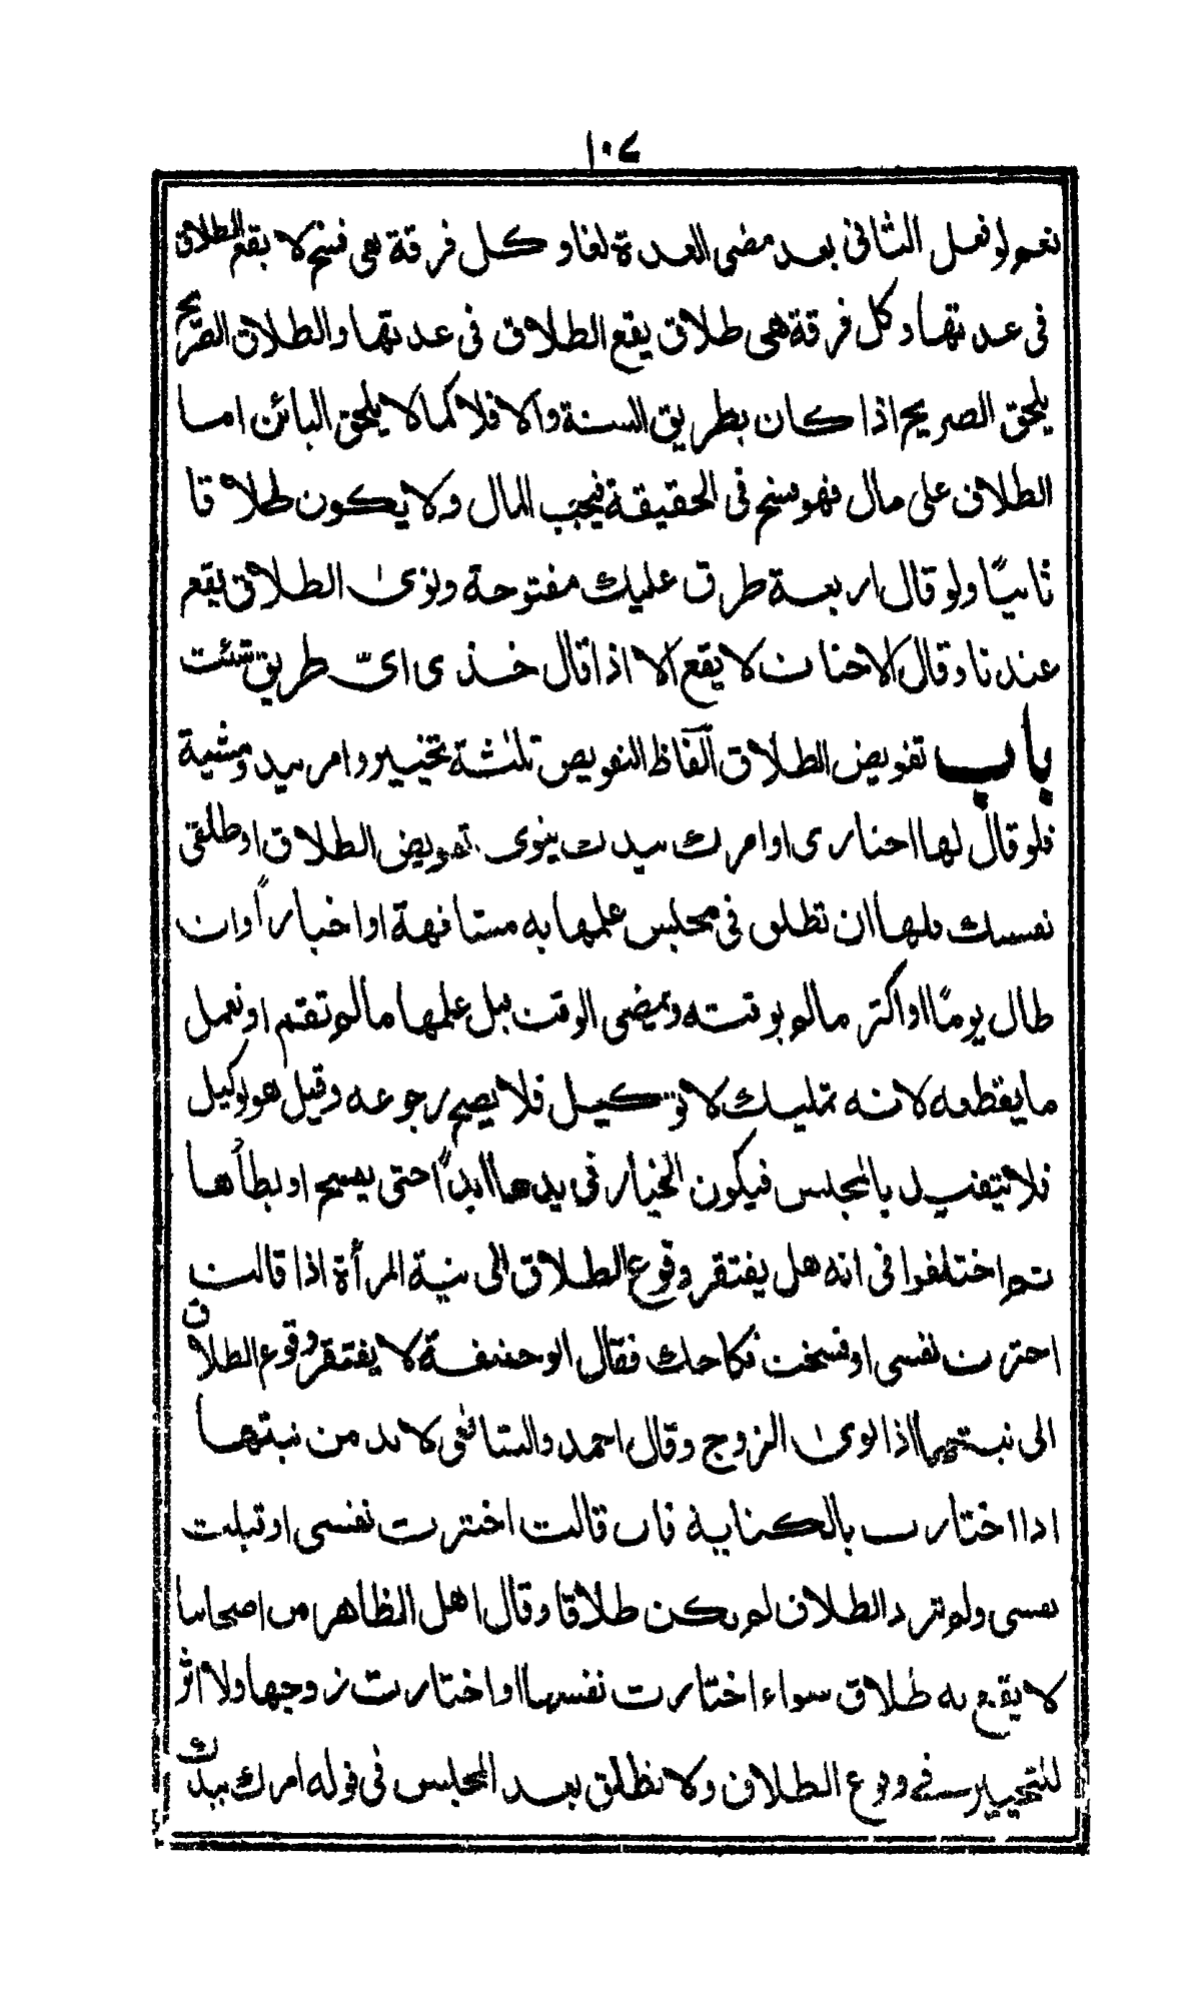 ١٠٤
نعم لو فعل الثانى بعد مضى العدة لغا وكل فرقة هى فسخ لا يقع الطلاق
فى عدتها وكل فرقة هى طلاق يقع الطلاق فى عدتها والطلاق الصريح
يلحق الصريح اذا كان بطريق السنة والا فلا كما لا يلحق البائن اما
الطلاق على مال فهو فسخ فى الحقيقة فيجب المال ولا يكون طلاقا
ثانيًا ولو قال اربعة طرق عليك مفتوحة ونوى الطلاق يقع
عندنا وقال الاحناف لا يقع الا اذا قال خذى اىّ طريق شئت
باب تفويض الطلاق الفاظ التفويض ثلثة تخيير وامر بيد ومشية
فلو قال لها اختارى او امرك بيدك ينوى تفويض الطلاق او طلقى
نفسك فلها ان تطلق فى مجلس علمها به مشافهة او اخبارًا وان
طال يومًا او اكثر مالم يوقته ويمضى الوقت قبل علمها مالم تقم او تعمل
ما يقطعه لانه تمليك لا توكيل فلا يصح رجوعه وقيل هو توكيل
فلا يتقيد بالمجلس فيكون الخيار فى يدها ابدًا حتى يفسخ او يطأها
ثم اختلفوا فى انه هل يفتقر وقوع الطلاق الى نية المرأة اذا قالت
اخترت نفسى او فسخت نكاحك فقال ابو حنيفة لا يفتقر وقوع الطلاق
الى نيتها اذا نوى الزوج وقال احمد والشافعى لا بد من نيتها
اذا اختارت بالكناية فان قالت اخترت نفسى او قبلت
نفسى ولم ترد الطلاق لم يكن طلاقا وقال اهل الظاهر من اصحابنا
لا يقع به طلاق سواء اختارت نفسها او اختارت زوجها ولا اثر
للتخيير فى وقوع الطلاق ولا تطلق بعد المجلس فى قوله امرك بيدك